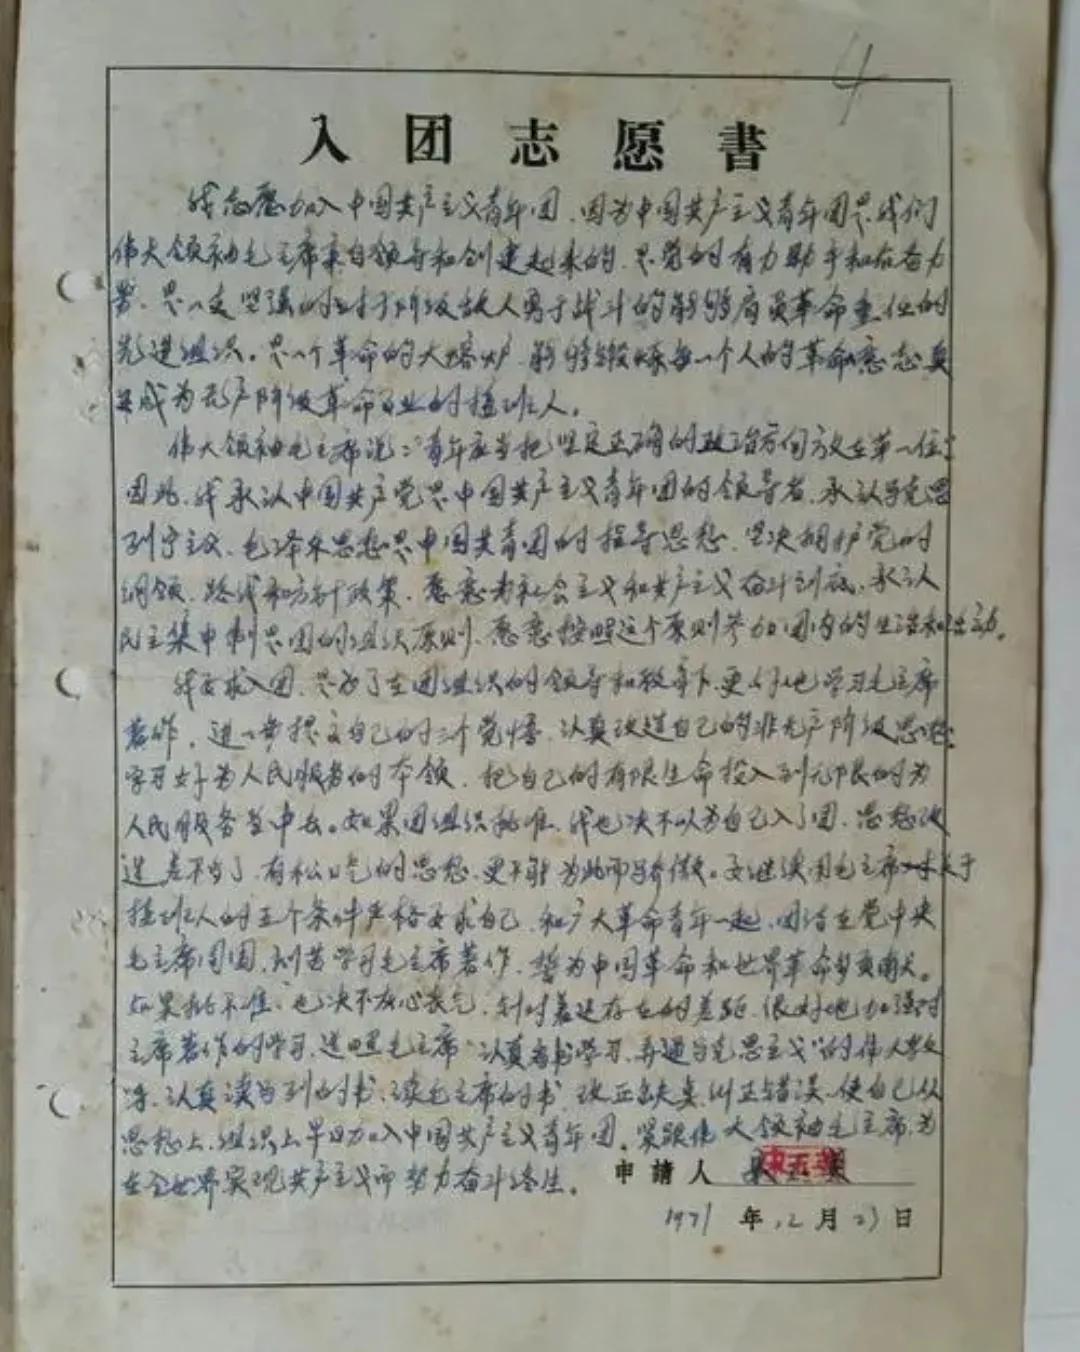 4
入团志愿書
我志愿加入中国共产主义青年团，因为中国共产主义青年团是我们
伟大领袖毛主席亲自领导和创建起来的，是党的有力助手和后备力
量，是一支坚强的对于阶级敌人勇于战斗的能够肩负革命重任的
先进组织。是一个革命的大熔炉，能够锻炼每一个人的革命意志，真
正成为无产阶级革命事业的接班人。
伟大领袖毛主席说："青年应当把坚定正确的政治方向放在第一位"
因此，我承认中国共产党是中国共产主义青年团的领导者，承认马克思
列宁主义、毛泽东思想是中国共青团的指导思想，坚决拥护党的
纲领、路线和方针政策，愿意为社会主义和共产主义奋斗到底，承认
民主集中制是团的组织原则，愿意按照这个原则参加团内的生活和活动。
我要求入团，是为了在团组织的领导和教育下，更好地学习毛主席
著作，进一步提高自己的三个觉悟，认真改造自己的非无产阶级思想，
学习好为人民服务的本领，把自己的有限生命投入到无限的为
人民服务当中去。如果团组织批准，我也决不以为自己入了团，思想改
造差不多了，有松口气的思想，更不能为此而骄傲。要继续用毛主席关于
接班人的五个条件严格要求自己，和广大革命青年一起，团结在党中央
毛主席周围，刻苦学习毛主席著作，誓为中国革命和世界革命多贡献。
如果批不准，也决不灰心丧气，针对着还存在的差距，很好地加强对
主席著作的学习，遵照毛主席"认真看书学习，弄通马克思主义"的伟大教
导，认真读马列的书，读毛主席的书，改正缺点，纠正错误，使自己从
思想上、组织上早日加入中国共产主义青年团，紧跟伟大领袖毛主席，为
在全世界实现共产主义而努力奋斗终生。
申請人
1971年12月23日